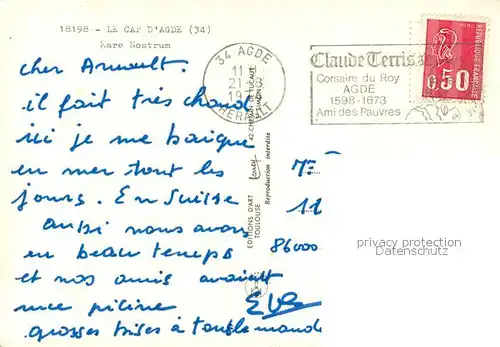 18198 - LE CAP D'AGDE (34)
Mare Nostrum
cher Arnault.
il fait très chaud
ici je me baigne
en mer tout les
jours. En Suisse
aussi nous avons
eu beau temps
et nos amis avaient
une picine
grosses bises à tout le monde
34 AGDE
11 H
21-8
19
HERAULT
Claude Terris
Corsaire du Roy
AGDE
1598-1673
Ami des Pauvres
REPUBLIQUE FRANCAISE
0,50
EDITIONS D'ART
TOULOUSE
Reproduction interdite
11
86000
privacy protection
Datenschutz